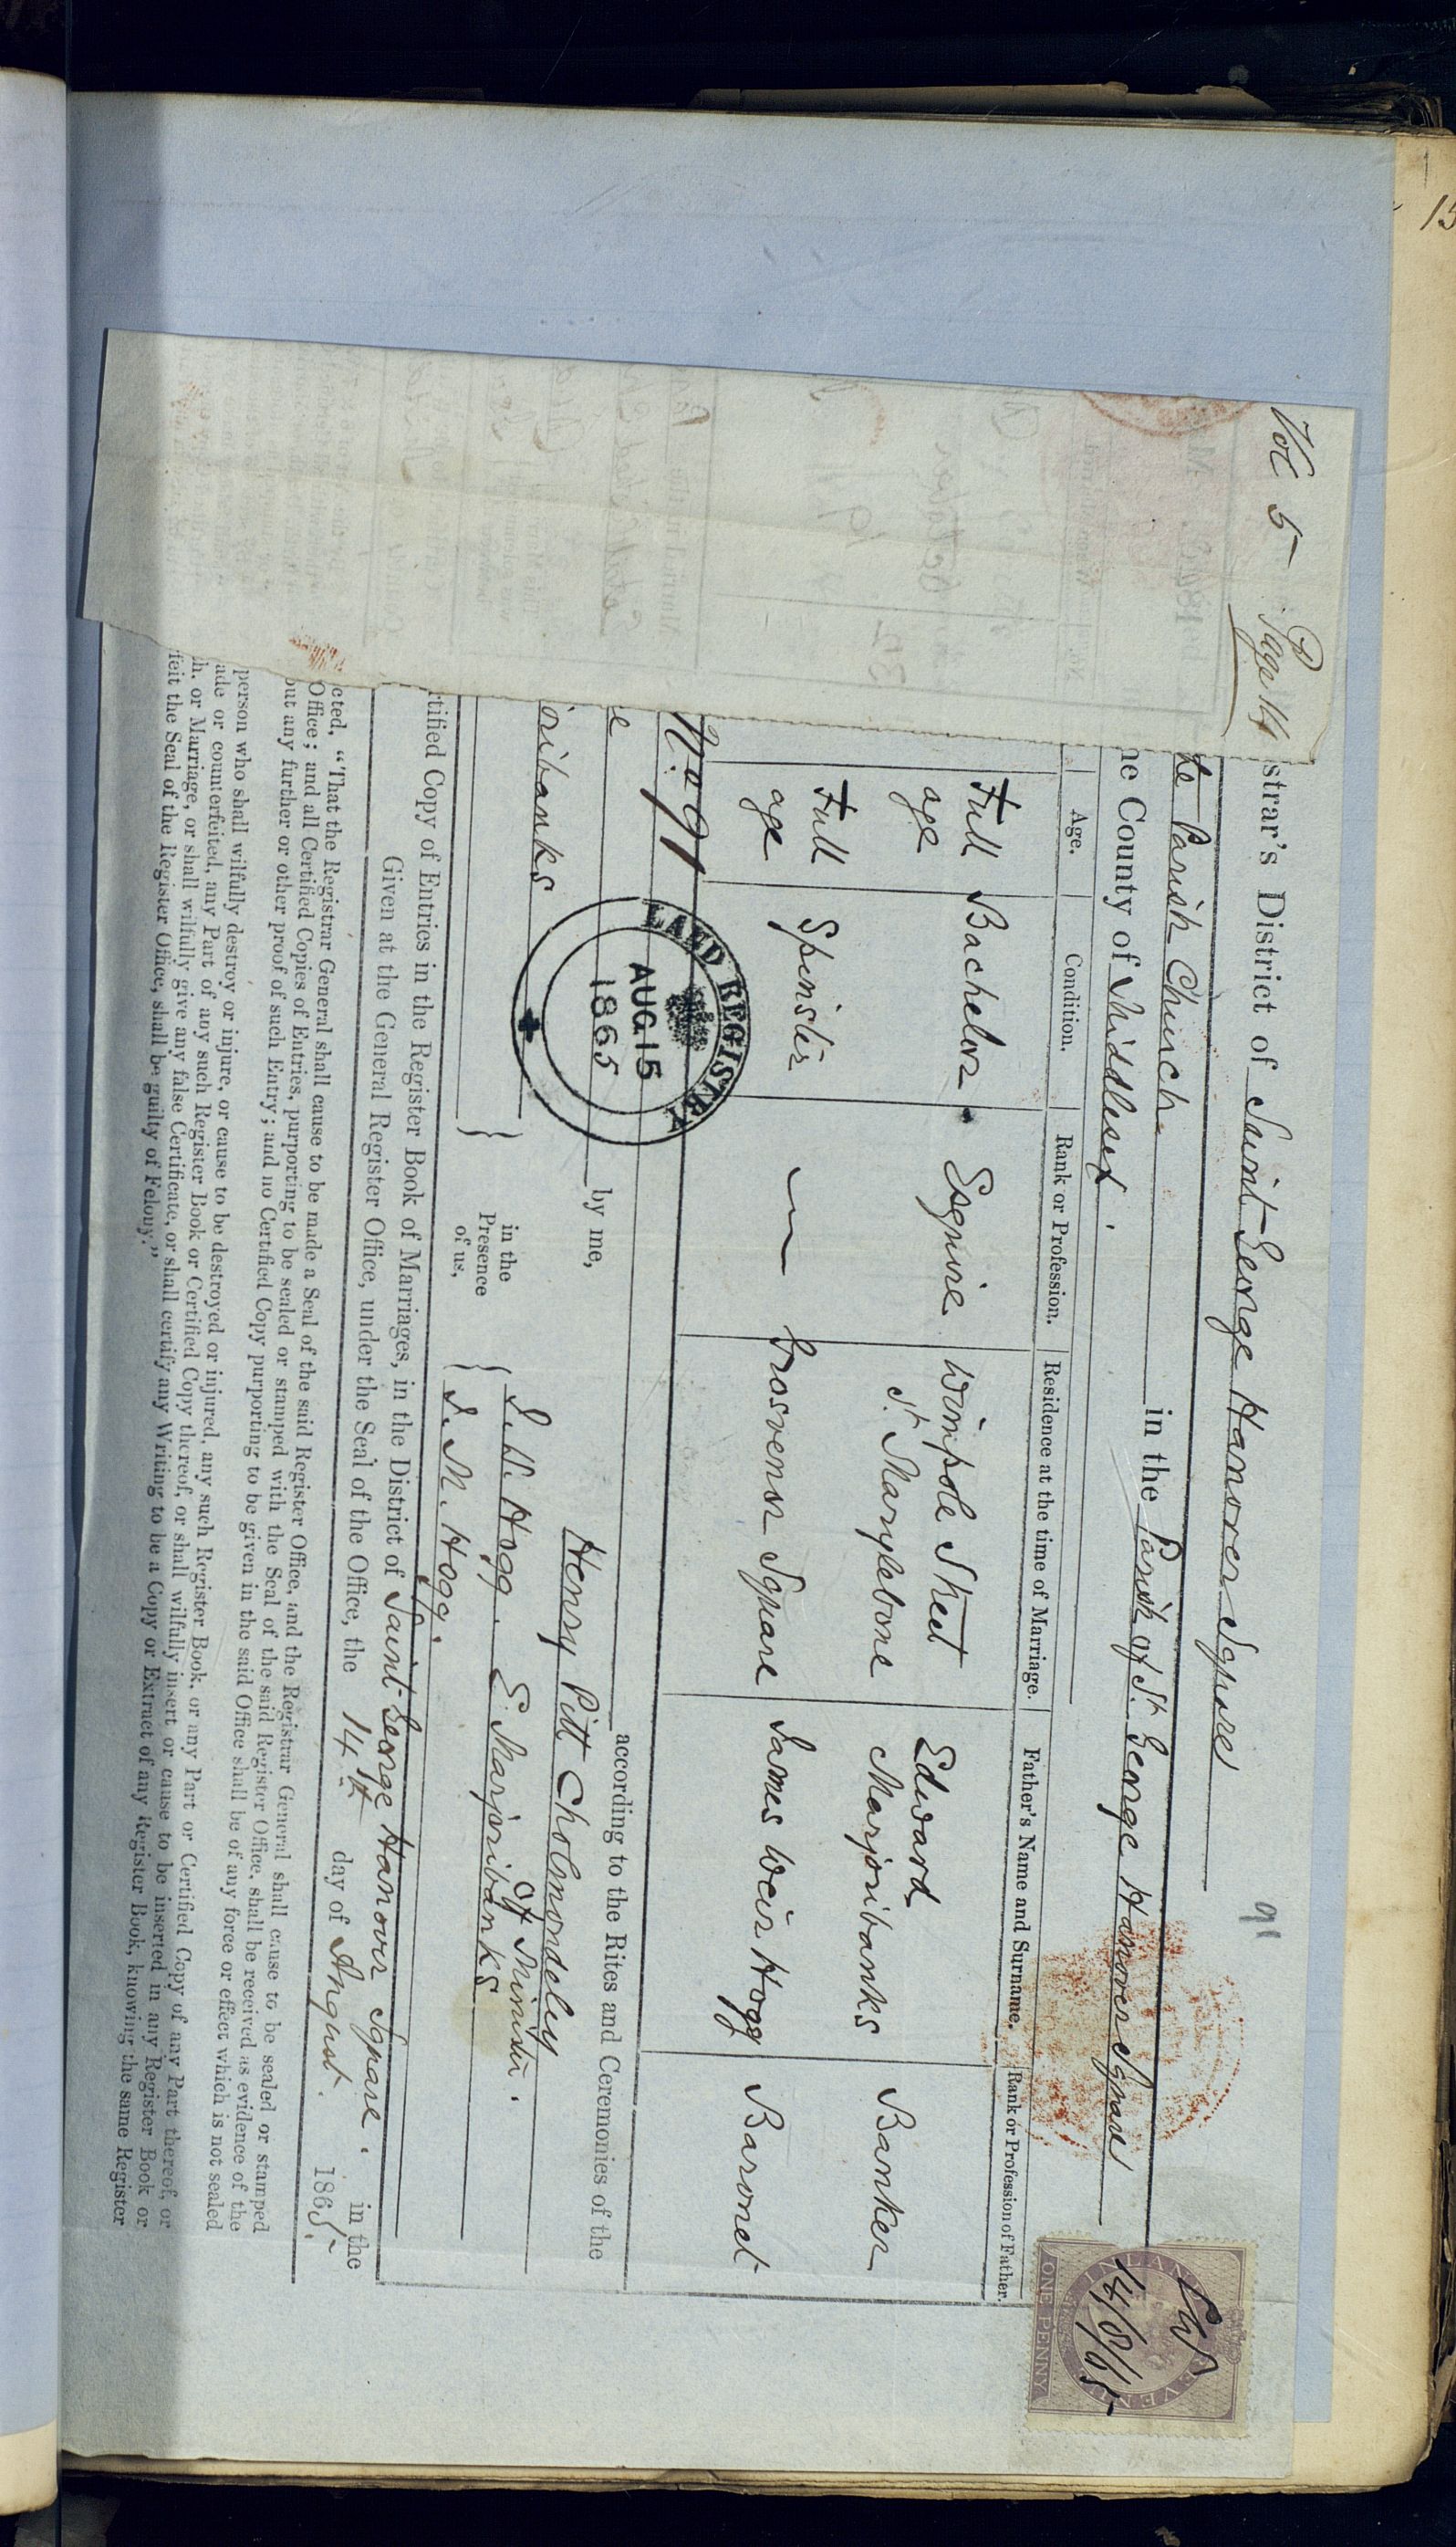 15
Vol 5 Page 14
strar's District of Saint George Hanover Square
91
Parish Church in the Parish of St. George Hanover Square
he County of Middlesex.
Age. Condition. Rank or Profession. Residence at the time of Marriage. Father's Name and Surname. Rank or Profession of Father.
Full age Bachelor Esquire Wimpole Street St. Marylebone Edward Marjoribanks Banker
Full age Spinster Grosvenor Square James Weir Hogg Baronet
according to the Rites and Ceremonies of the
e by me, Henry Pitt Cholmondeley
off Minister.
oribanks in the Presence of us, J. W. Hogg. E. Marjoribanks
I. M. Hogg.
rtified Copy of Entries in the Register Book of Marriages, in the District of Saint George Hanover Square. in the
Given at the General Register Office, under the Seal of the Office, the 14th day of August. 1865.
cted, "That the Registrar General shall cause to be made a Seal of the said Register Office, and the Registrar General shall cause to be sealed or stamped
Office; and all Certified Copies of Entries, purporting to be sealed or stamped with the Seal of the said Register Office, shall be received as evidence of the
out any further or other proof of such Entry; and no Certified Copy purporting to be given in the said Office shall be of any force or effect which is not sealed
person who shall wilfully destroy or injure, or cause to be destroyed or injured, any such Register Book, or any Part or Certified Copy of any Part thereof, or
ade or counterfeited, any Part of any such Register Book or Certified Copy thereof, or shall wilfully insert or cause to be inserted in any Register Book or
h. or Marriage, or shall wilfully give any false Certificate, or shall certify any Writing to be a Copy or Extract of any Register Book, knowing the same Register
feit the Seal of the Register Office, shall be guilty of Felony."
LAND REGISTRY
AUG 15
1865
INLAND REVENUE
14/8/65
ONE PENNY